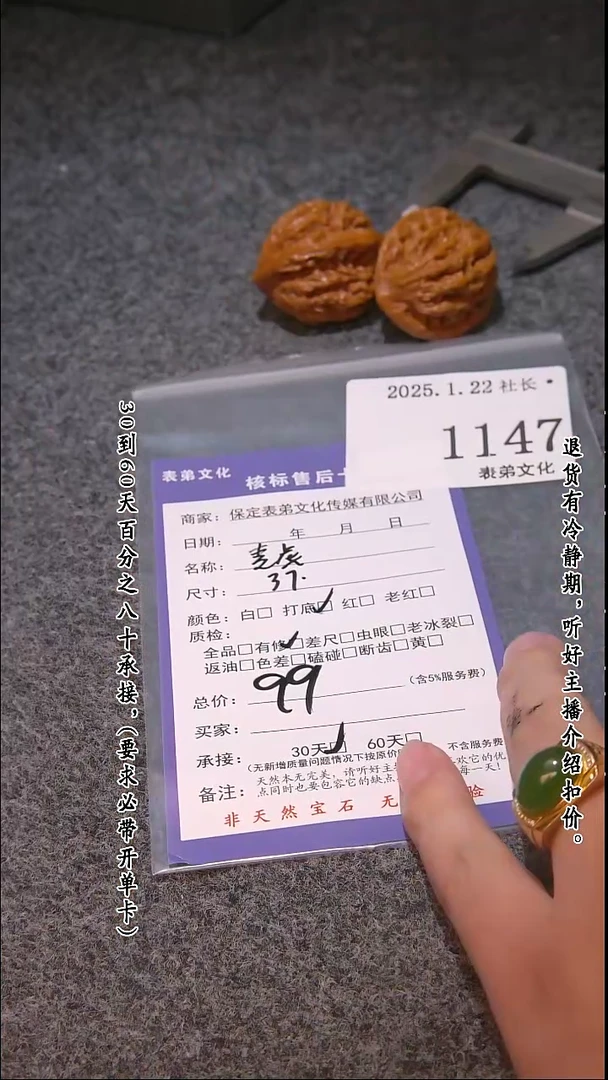 2025.1.22 社长
1147
表弟文化
表弟文化
核标售后卡
商家：保定表弟文化传媒有限公司
日期： 年 月 日
名称：
尺寸：37.
颜色：白□ 打底□ 红□ 老红□
质检：
全品□有修□差尺□虫眼□老冰裂□
返油□色差□磕碰□断齿□黄□
总价：99（含5%服务费）
买家：
承接：30天□ 60天□
（无新增质量问题情况下按原价 不含服务费
备注：天然本无完美，请听好主 欢它的优
点同时也要包容它的缺点 每一天！
非天然宝石 无 验
30到60天百分之八十承接，（要求必带开单卡）
退货有冷静期，听好主播介绍扣价。